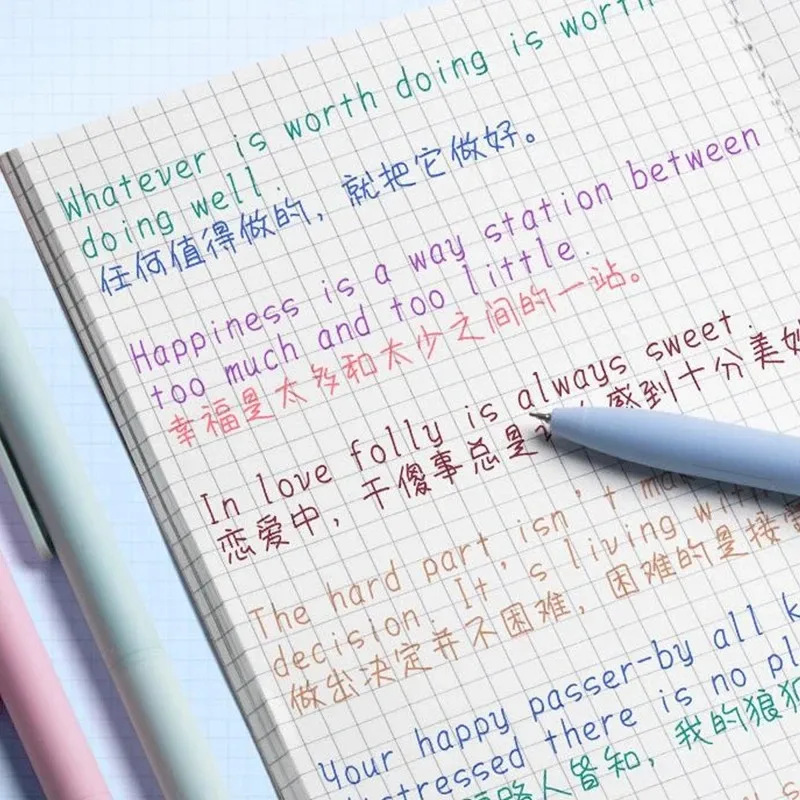 Whatever is worth doing is worth
doing well.
任何值得做的，就把它做好。
Happiness is a way station between
too much and too little.
幸福是太多和太少之间的一站。
In love folly is always sweet.
恋爱中，干傻事总是 感到十分美妙
The hard part isn't
decision. It's living with
做出决定并不困难，困难的是接受
Your happy passer-by all
distressed there is no
路人皆知，我的狼狈